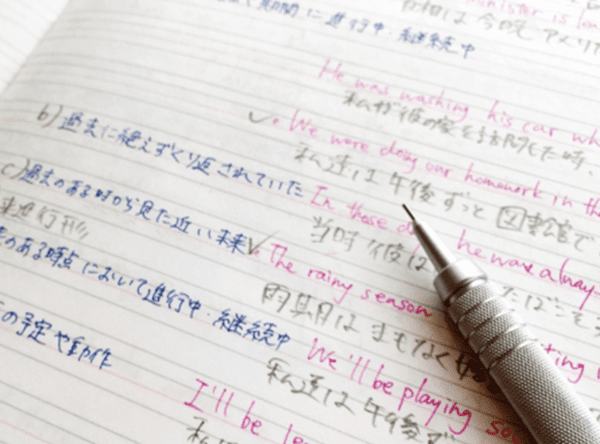 minister is
は今晩アメリカ
期間に進行中・継続中
He was washing his car
私が彼の家を訪問した時、
b) 過去に絶えずくり返されていた
We were doing our homework in the
私達は午後ずっと図書館で
c) 過去のある時から見た近い未来
In those he was alway
当時彼は たばこを
来進行形
The rainy season ting
雨期はまもなく
のある時点において進行中・継続中
We'll be playing
私達は午後
の予定や動作
I'll be